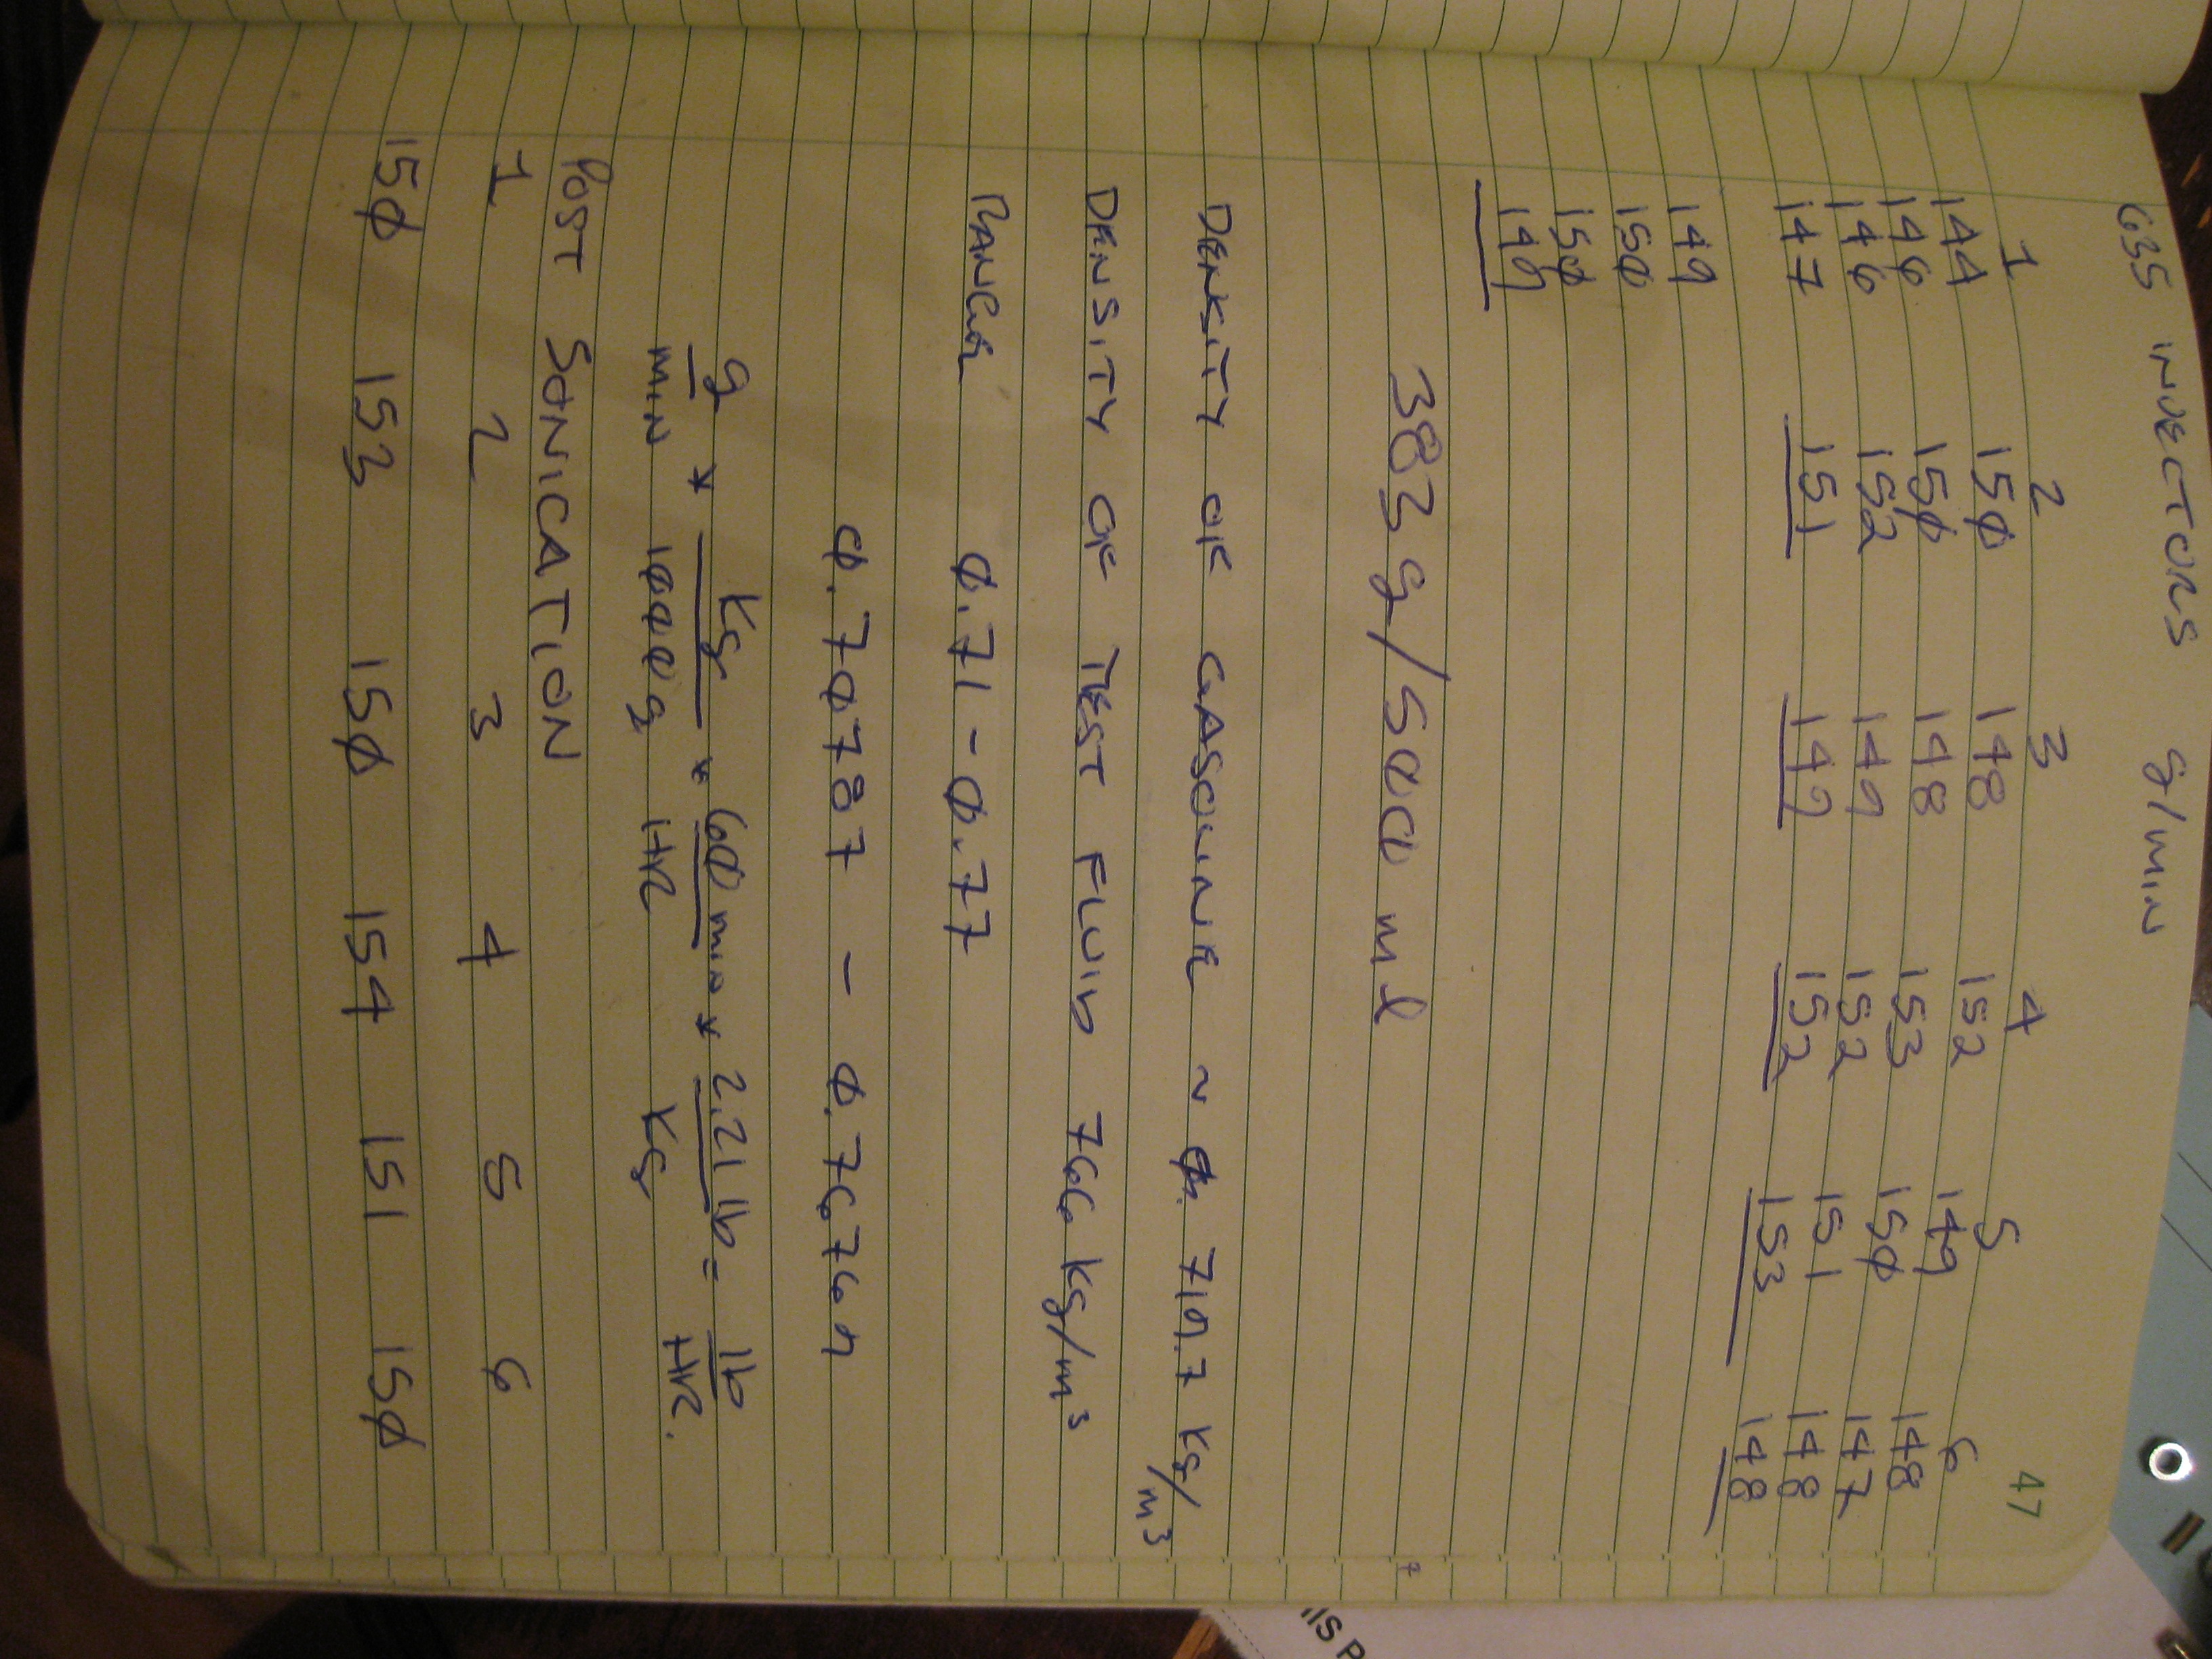 47
635 INJECTORS g/min
1 2 3 4 5 6
144 150 148 152 149 148
146 150 148 153 150 147
146 152 149 152 151 148
147 151 149 152 153 148
149
150
150
149
383 g/500 ml
DENSITY OF GASOLINE ~ 719.7 kg/m³
DENSITY OF TEST FLUID 766 kg/m³
RANGE 0.71 - 0.77
0.70787 - 0.76769
g/min * kg/1000g * 60 min/HR * 2.21 lb/kg = lb/HR.
POST SONICATION
1 2 3 4 5 6
150 153 150 154 151 150
IIS P